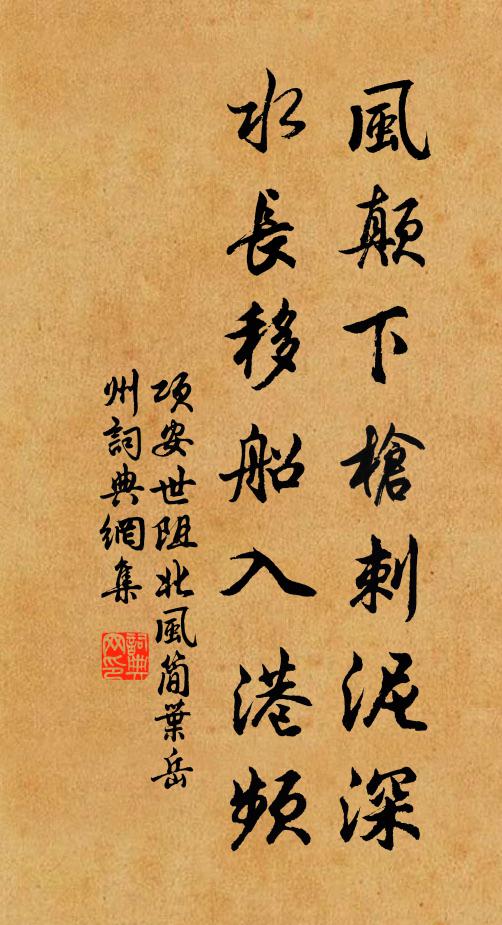 風顛下槍刺泥深
水長移船入港頻
项安世阻北風简葉岳
州詞典網集
詞典網印